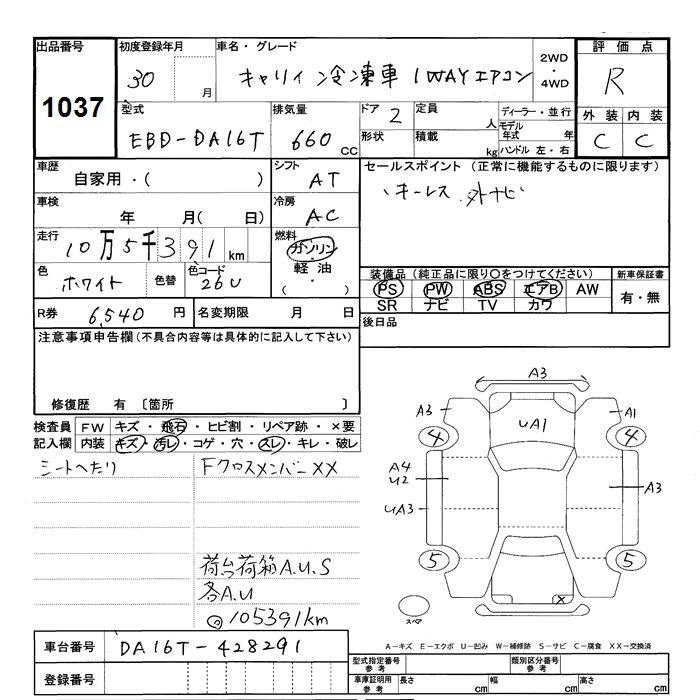 出品番号 1037
初度登録年月 30 月
車名・グレード キャリィ 冷凍車 1WAYエアコン
2WD・4WD
評価点 R
外装 C 内装 C
型式 EBD-DA16T
排気量 660 CC
ドア 2
定員 人
形状
積載 kg
ディーラー・並行
モデル年式 年
ハンドル 左・右
車歴 自家用・( )
シフト AT
セールスポイント (正常に機能するものに限ります)
キーレス 外ナビ
車検 年 月( 日)
冷房 AC
走行 10万5千391 km
燃料 ガソリン・軽油・( )
色 ホワイト 色替
色コード 26U
装備品 (純正品に限り○をつけてください)
PS PW ABS エアB AW
SR ナビ TV カワ
新車保証書 有・無
R券 6,540 円
名変期限 月 日
後日品
注意事項申告欄 (不具合内容等は具体的に記入して下さい)
修復歴 有 〔箇所 〕
検査員記入欄
FW キズ・飛石・ヒビ割・リペア跡・×要
内装 キズ・汚レ・コゲ・穴・スレ・キレ・破レ
シートへたり
Fクロスメンバー××
荷台荷箱A.U.S
各A.U
◎105391km
A3
A3
A1
UA1
4
4
A4
U2
A3
UA3
5
5
X
スペア
A-キズ E-エクボ U-凹み W-補修跡 S-サビ C-腐食 XX-交換済
車台番号 DA16T-428291
登録番号
型式指定番号 参考
類別区分番号 参考
車庫証明用 参考 長さ cm 幅 cm 高さ cm